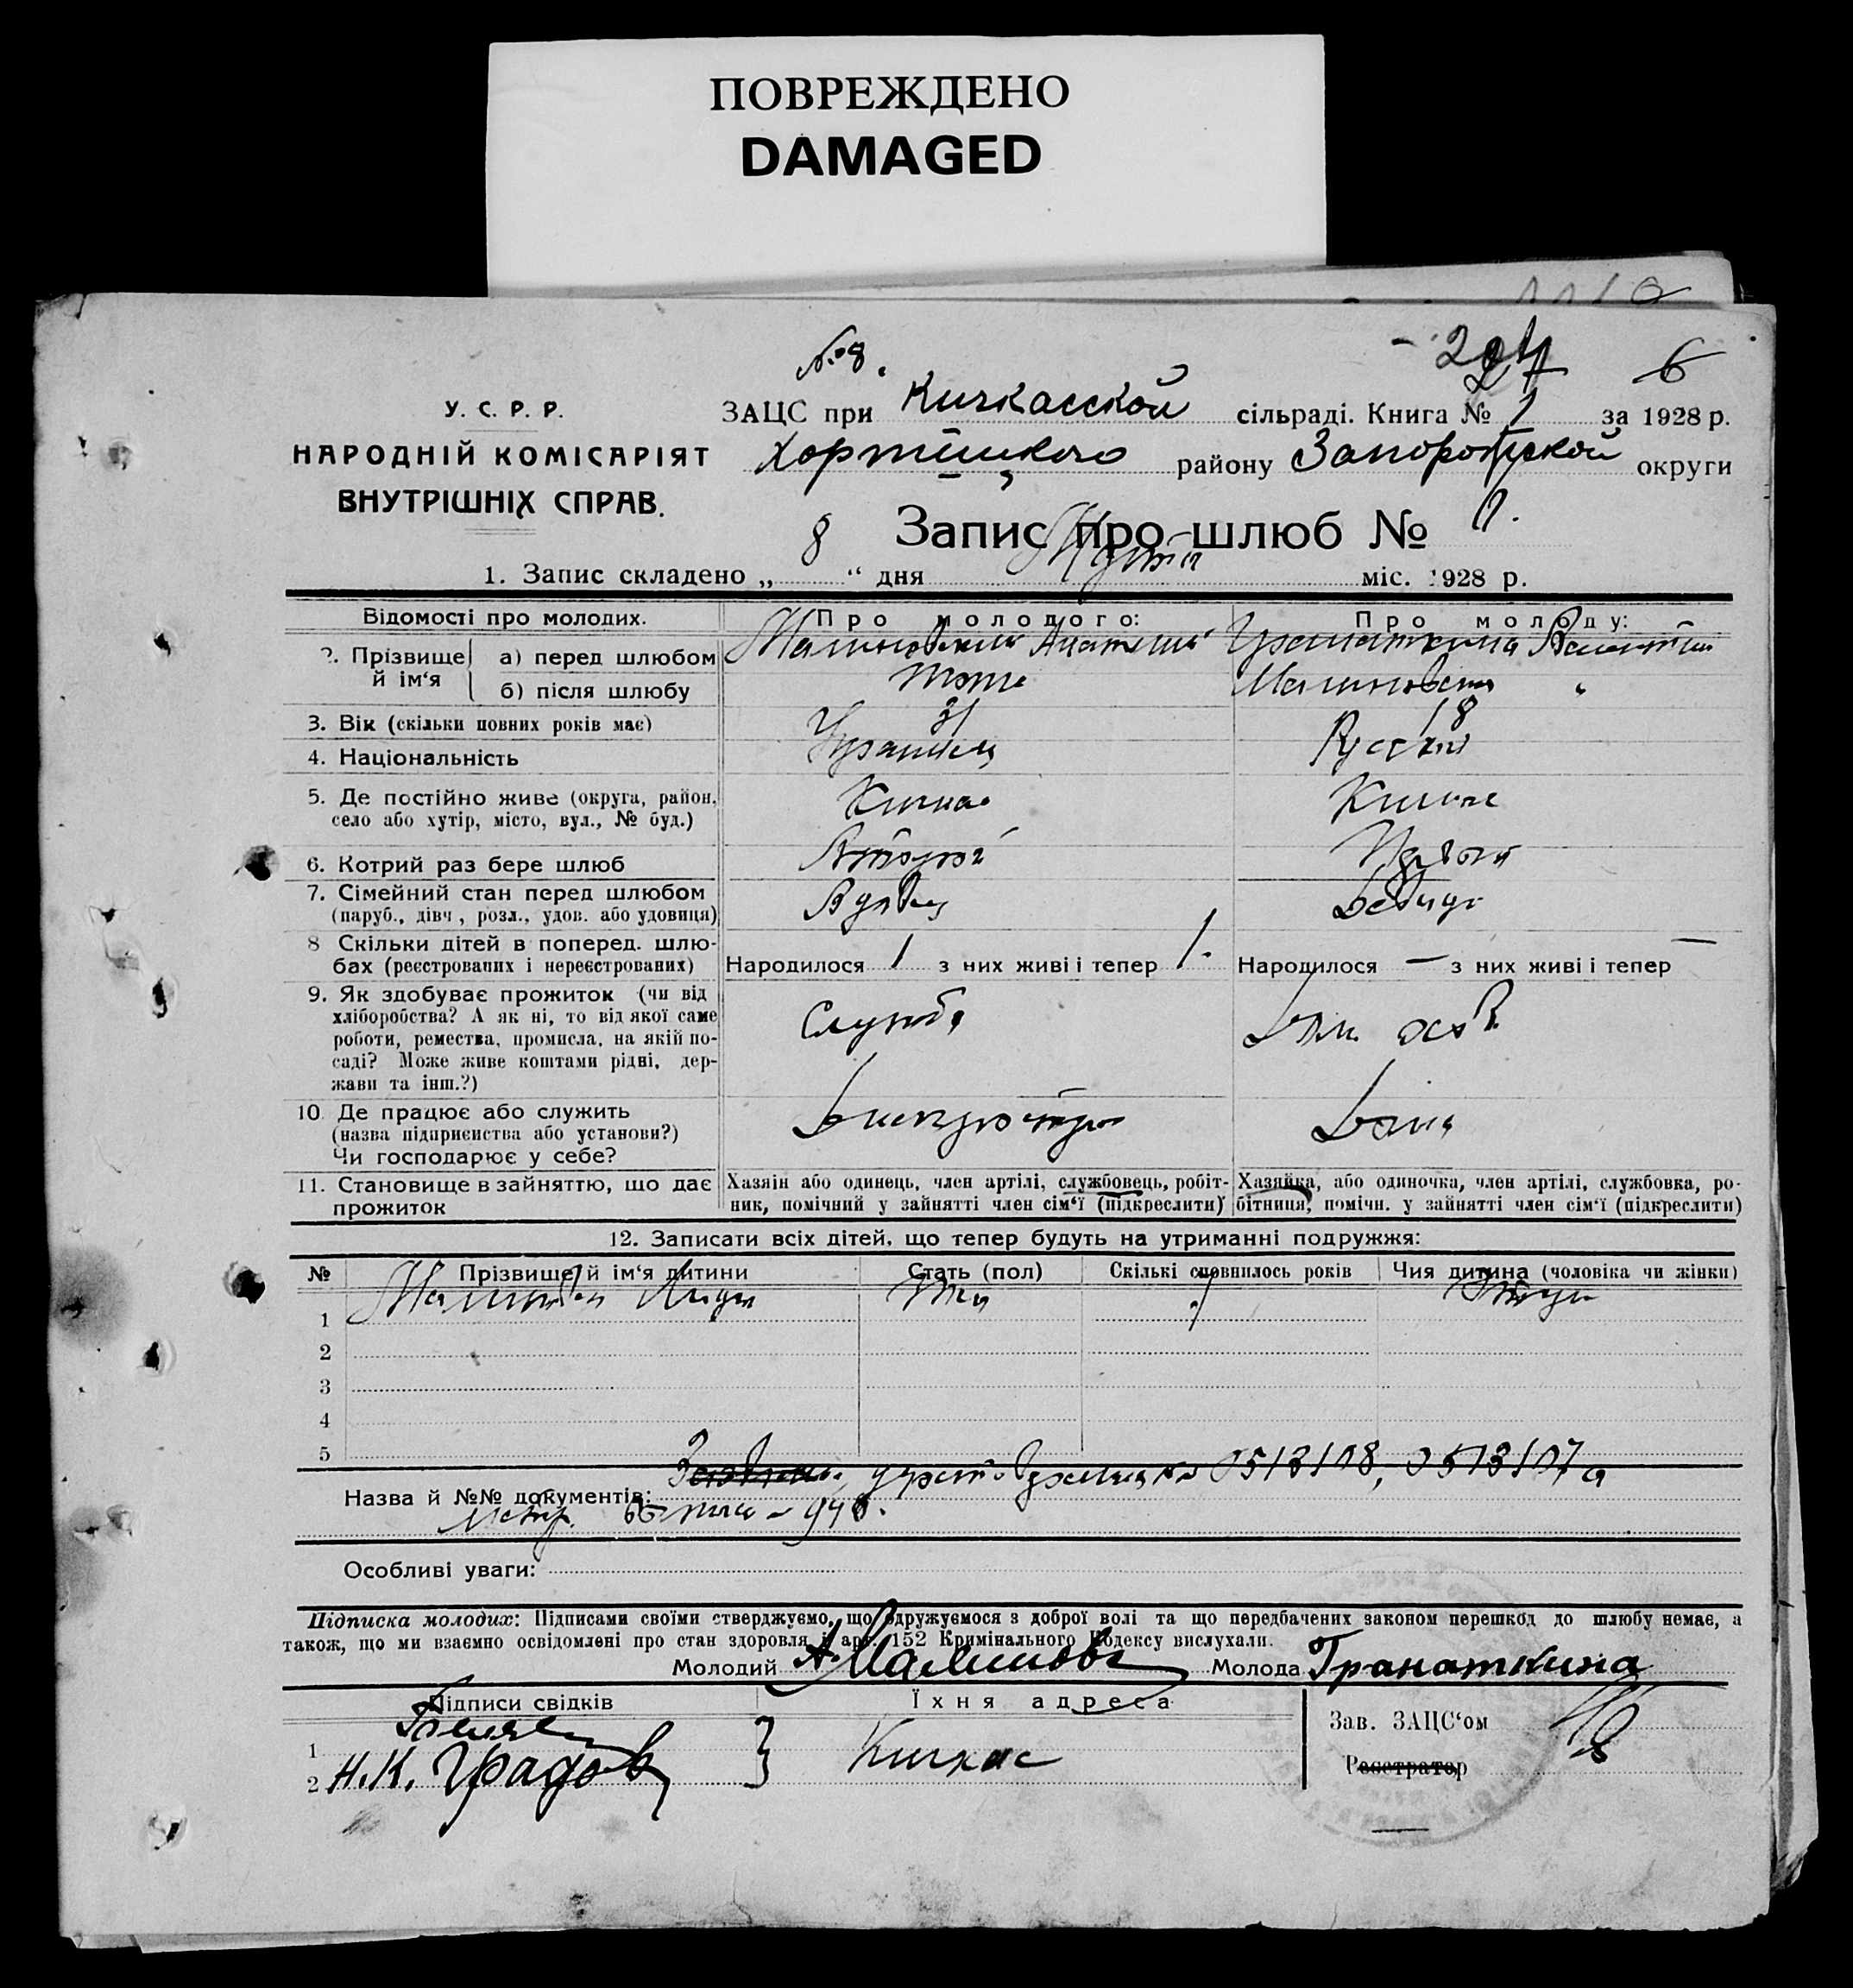 ПОВРЕЖДЕНО
DAMAGED
№8.
6
У. С. Р. Р.
НАРОДНІЙ КОМІСАРІЯТ
ВНУТРІШНІХ СПРАВ.
ЗАЦС при Кичкасской сільраді. Книга № 1 за 1928 р.
Хортицкого району Запорожской округи
Запис про шлюб №
1. Запис складено „ 8 “ дня Марта міс. 1928 р.
Відомості про молодих. Про молодого: Про молоду:
2. Прізвище й ім‘я а) перед шлюбом Малиновский Анатолий Гранаткина Валентин
б) після шлюбу тоже Малиновская "
3. Вік (скільки повних років має) 31 18
4. Національність Украинец Русская
5. Де постійно живе (округа, район, село або хутір, місто, вул., № буд.) Кичкас Кичкас
6. Котрий раз бере шлюб Второй Первый
7. Сімейний стан перед шлюбом Вдовец Девица
(паруб., дівч., розл., удов. або удовиця)
8 Скільки дітей в поперед. шлюбах (реєстрованих і нереєстрованих) Народилося 1 з них живі і тепер 1. Народилося — з них живі і тепер —
9. Як здобуває прожиток (чи від
хліборобства? А як ні, то від якої саме
роботи, ремества, промисла, на якій по-
саді? Може живе коштами рідні, дер-
жави та інш.?)
Служба Дом. хоз.
10. Де працює або служить
(назва підприємства або установи?)
Чи господарює у себе?
Днепрострой Дома
11. Становище в зайняттю, що дає
прожиток
Хазяїн або одинець, член артілі, службовець, робіт-
ник, помічний у зайнятті член сім‘ї (підкреслити)
Хазяйка, або одиночка, член артілі, службовка, ро-
бітниця, помічн. у зайнятті член сім‘ї (підкреслити)
12. Записати всіх дітей, що тепер будуть на утриманні подружжя:
№ Прізвище й ім‘я дитини Стать (пол) Скількі сповнилось років Чия дитина (чоловіка чи жінки)
1 Лидия Жен Отца
2
3
4
5
Назва й №№ документів: 0513108, 0513107
Особливі уваги:
Підписка молодих: Підписами своїми стверджуємо, що одружуємося з доброї волі та що передбачених законом перешкод до шлюбу немає, а
також, що ми взаємно освідомлені про стан здоровля і арт. 152 Кримінального Кодексу вислухали.
Молодий А. Малиновс Молода Гранаткина
Підписи свідків Їхня адреса
1
2 Н.К. Градов
Кичкас
Зав. ЗАЦС‘ом
Реєстратор